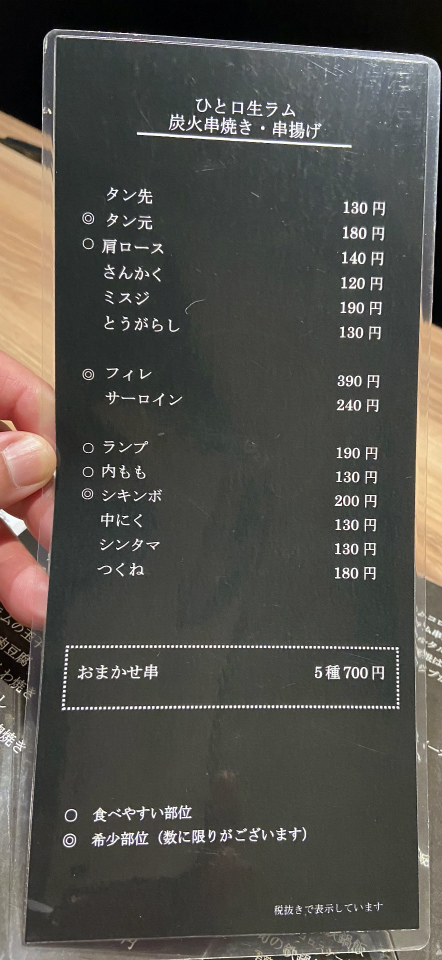 ひと口生ラム
炭火串焼き・串揚げ
タン先 130円
◎ タン元 180円
○ 肩ロース 140円
さんかく 120円
ミスジ 190円
とうがらし 130円
◎ フィレ 390円
サーロイン 240円
○ ランプ 190円
○ 内もも 130円
◎ シキンボ 200円
中にく 130円
シンタマ 130円
つくね 180円
おまかせ串 5種700円
○ 食べやすい部位
◎ 希少部位（数に限りがございます）
税抜きで表示しています
肉豆腐